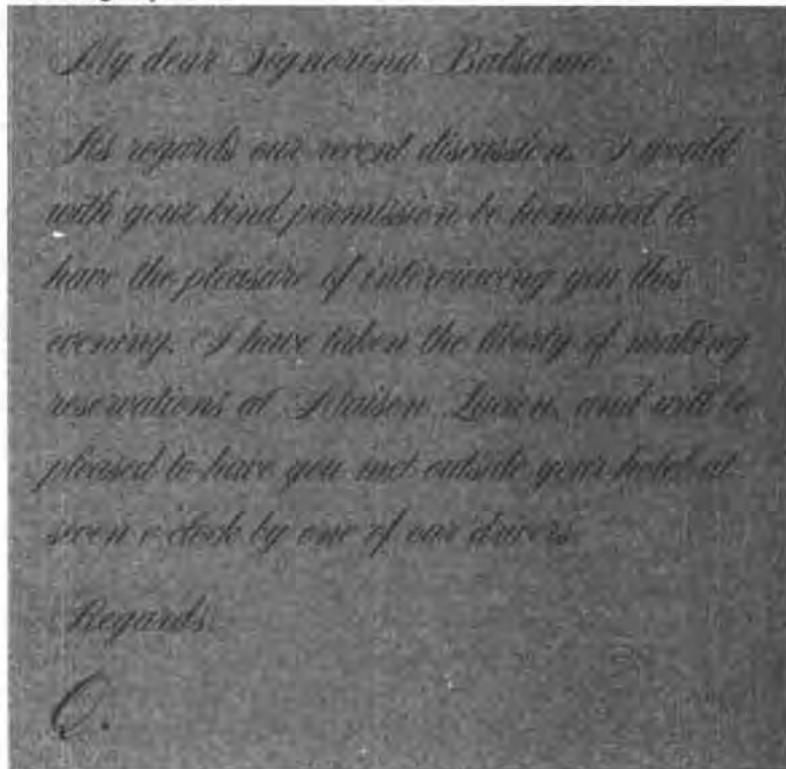 My dear Signorina Balsamo:
As regards our recent discussion, I would
with your kind permission be honoured to
have the pleasure of interviewing you this
evening. I have taken the liberty of making
reservations at Maison Lucien, and will be
pleased to have you met outside your hotel at
seven o'clock by one of our drivers.
Regards,
Q.